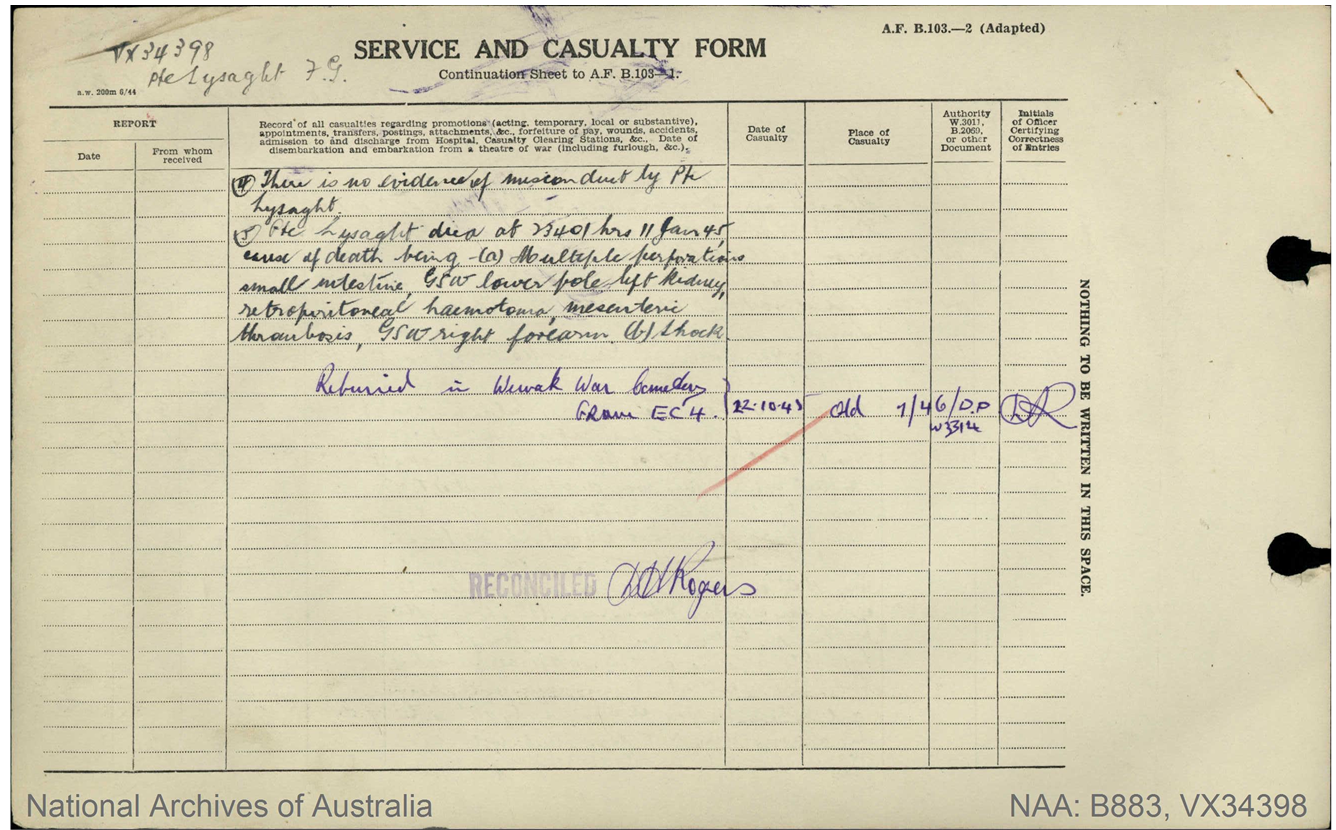 A.F. B.103.—2 (Adapted)
VX34398
SERVICE AND CASUALTY FORM
Pte Lysaght F.G.
Continuation Sheet to A.F. B.103—1.
a.w. 200m 6/44
REPORT
Date
From whom
received
Record of all casualties regarding promotions (acting, temporary, local or substantive),
appointments, transfers, postings, attachments, &c., forfeiture of pay, wounds, accidents,
admission to and discharge from Hospital, Casualty Clearing Stations, &c., Date of
disembarkation and embarkation from a theatre of war (including furlough, &c.).
Date of
Casualty
Place of
Casualty
Authority
W.3011,
B.2069,
or other
Document
Initials
of Officer
Certifying
Correctness
of Entries
(4) There is no evidence of misconduct by Pte
Lysaght.
(5) Pte Lysaght died at hrs 11 Jan 45,
cause of death being -(a) Multiple perforations
small intestine, GSW lower pole left Kidney,
retroperitoneal haemotoma, mesenteric
thrombosis, GSW right forearm. (b) Shock.
Reburied in Wewak War Cemetery
Grave EC 4. 22-10-45 Old 7/46/D.P
W3314
RECONCILED Rogers
NOTHING TO BE WRITTEN IN THIS SPACE.
National Archives of Australia
NAA: B883, VX34398